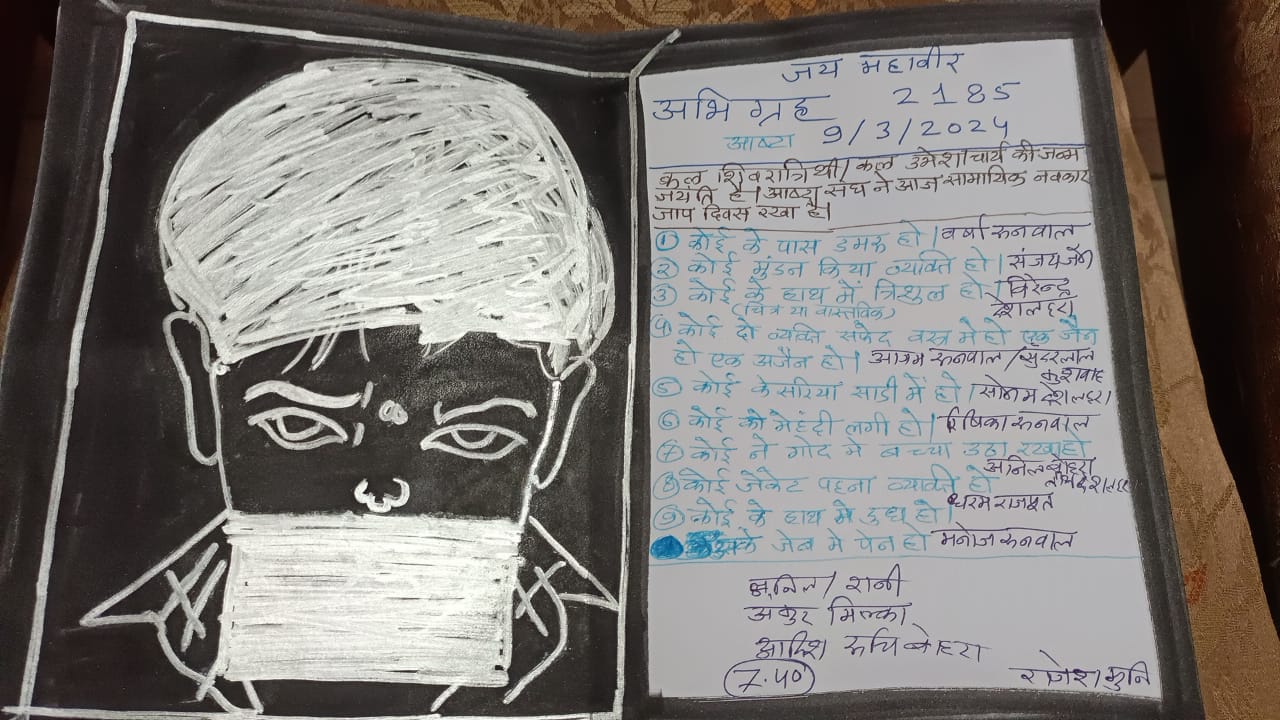 जय महावीर
अभिग्रह 2185
आष्टा 9/3/2024
कल शिवरात्रि थी/कल उमेशाचार्य की जन्म
जयंति है। आष्टा संघ ने आज सामायिक नवकार
जाप दिवस रखा है।
① कोई के पास डमरू हो। वर्षा रुनवाल
② कोई मुंडन किया व्यक्ति हो। संजय जैन
③ कोई के हाथ में त्रिशुल हो। विरेन्द्र
(चित्र या वास्तविक) देशलहरा
४ कोई दो व्यक्ति सफेद वस्त्र मे हो एक जैन
हो एक अजैन हो। आगम रुनवाल/सुंदरलाल
कुशवाह
⑤ कोई केसरिया साडी में हो। सोनम देशलहरा
⑥ कोई को मेहंदी लगी हो। रिषिका रुनवाल
⑦ कोई ने गोद मे बच्चा उठा रखा हो
अनिल बोहरा
⑧ कोई जेकेट पहना व्यक्ति हो देशलहरा
⑨ कोई के हाथ मे दुध हो। धरम राजपूत
उसके जेब मे पेन हो मनोज रुनवाल
अनिल/रानी
अंकुर मिल्का
आदिश रुचि बोहरा
7.40 राजेश मुनि